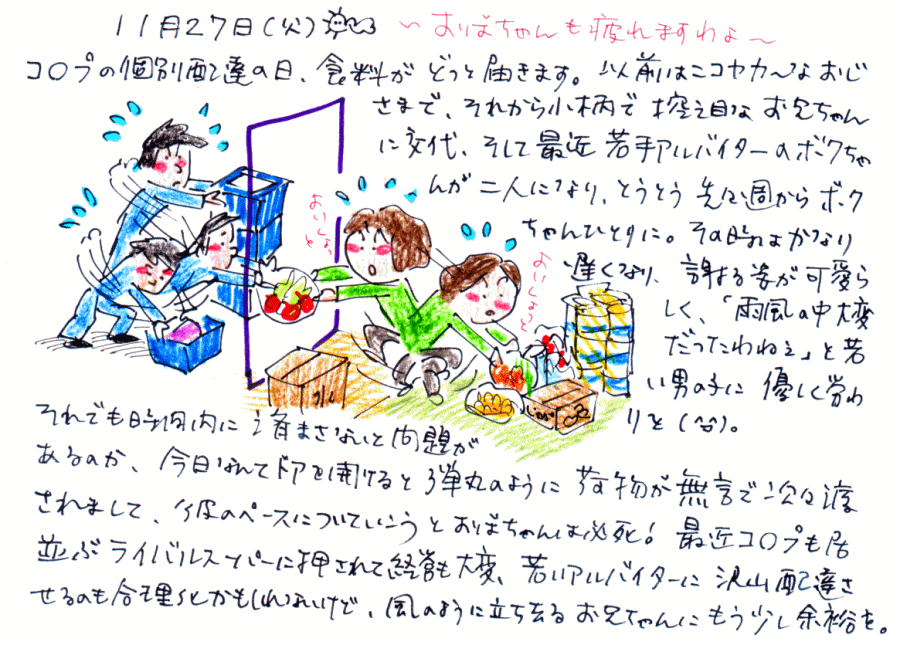 11月27日(火)
〜おばちゃんも疲れますわよ〜
コロプの個別配達の日、食料がどっと届きます。以前はニコヤカ〜なおじ
さまで、それから小柄で控え目なお兄ちゃん
に交代、そして最近若手アルバイターのボクちゃ
んが二人になり、とうとう先々週からボク
ちゃんひとりに。その時はかなり
遅くなり、謝る姿が可愛ら
しく、「雨風の中大変
だったわねぇ」と若
い男の子に優しく労わ
りを(笑)。
おいしょっと
おいしょっと
それでも時間内に済まさないと問題が
あるのか、今日なんてドアを開けると弾丸のように荷物が無言で次々渡
されまして、彼のペースについていこうとおばちゃんは必死!最近コロプも居
並ぶライバルスーパーに押されて経営も大変、若いアルバイターに沢山配達さ
せるのも合理化かもしれないけど、風のように立ち去るお兄ちゃんにもう少し余裕を。